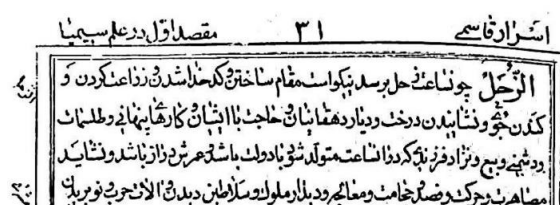 اسرار قاسمی ۳۱ مقصد اول در علم سیمیا
الزحل چون ساعت زحل برسد نیکو است مقام ساختن و کدخدا شدن و زراعت کردن و
کندن جوی و نشانیدن درخت و دیدار دهقانان و حاجت با ایشان و کارهاء پنهانی و طلسمات
و دشمنی و بیع و نزاد فرزندیکه در آنساعت متولد شود با دولت باشد عمرش دراز باشد و نشاید
مصاهرت و حرکت و فصد و حجامت و معالجه و دیدار ملوک و سلاطین دیدن آلات حرب